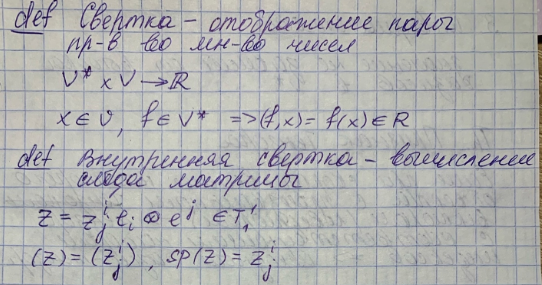 def Свертка - отображение пары
пр-в во мн-во чисел
V* x V → R
x ∈ V, f ∈ V* => (f, x) = f(x) ∈ R
def Внутренняя свертка - вычисление
следа матрицы
z = z^i_j e_i ⊗ e^j ∈ T^1_1
(z) = (z^i_j), sp(z) = z^i_j